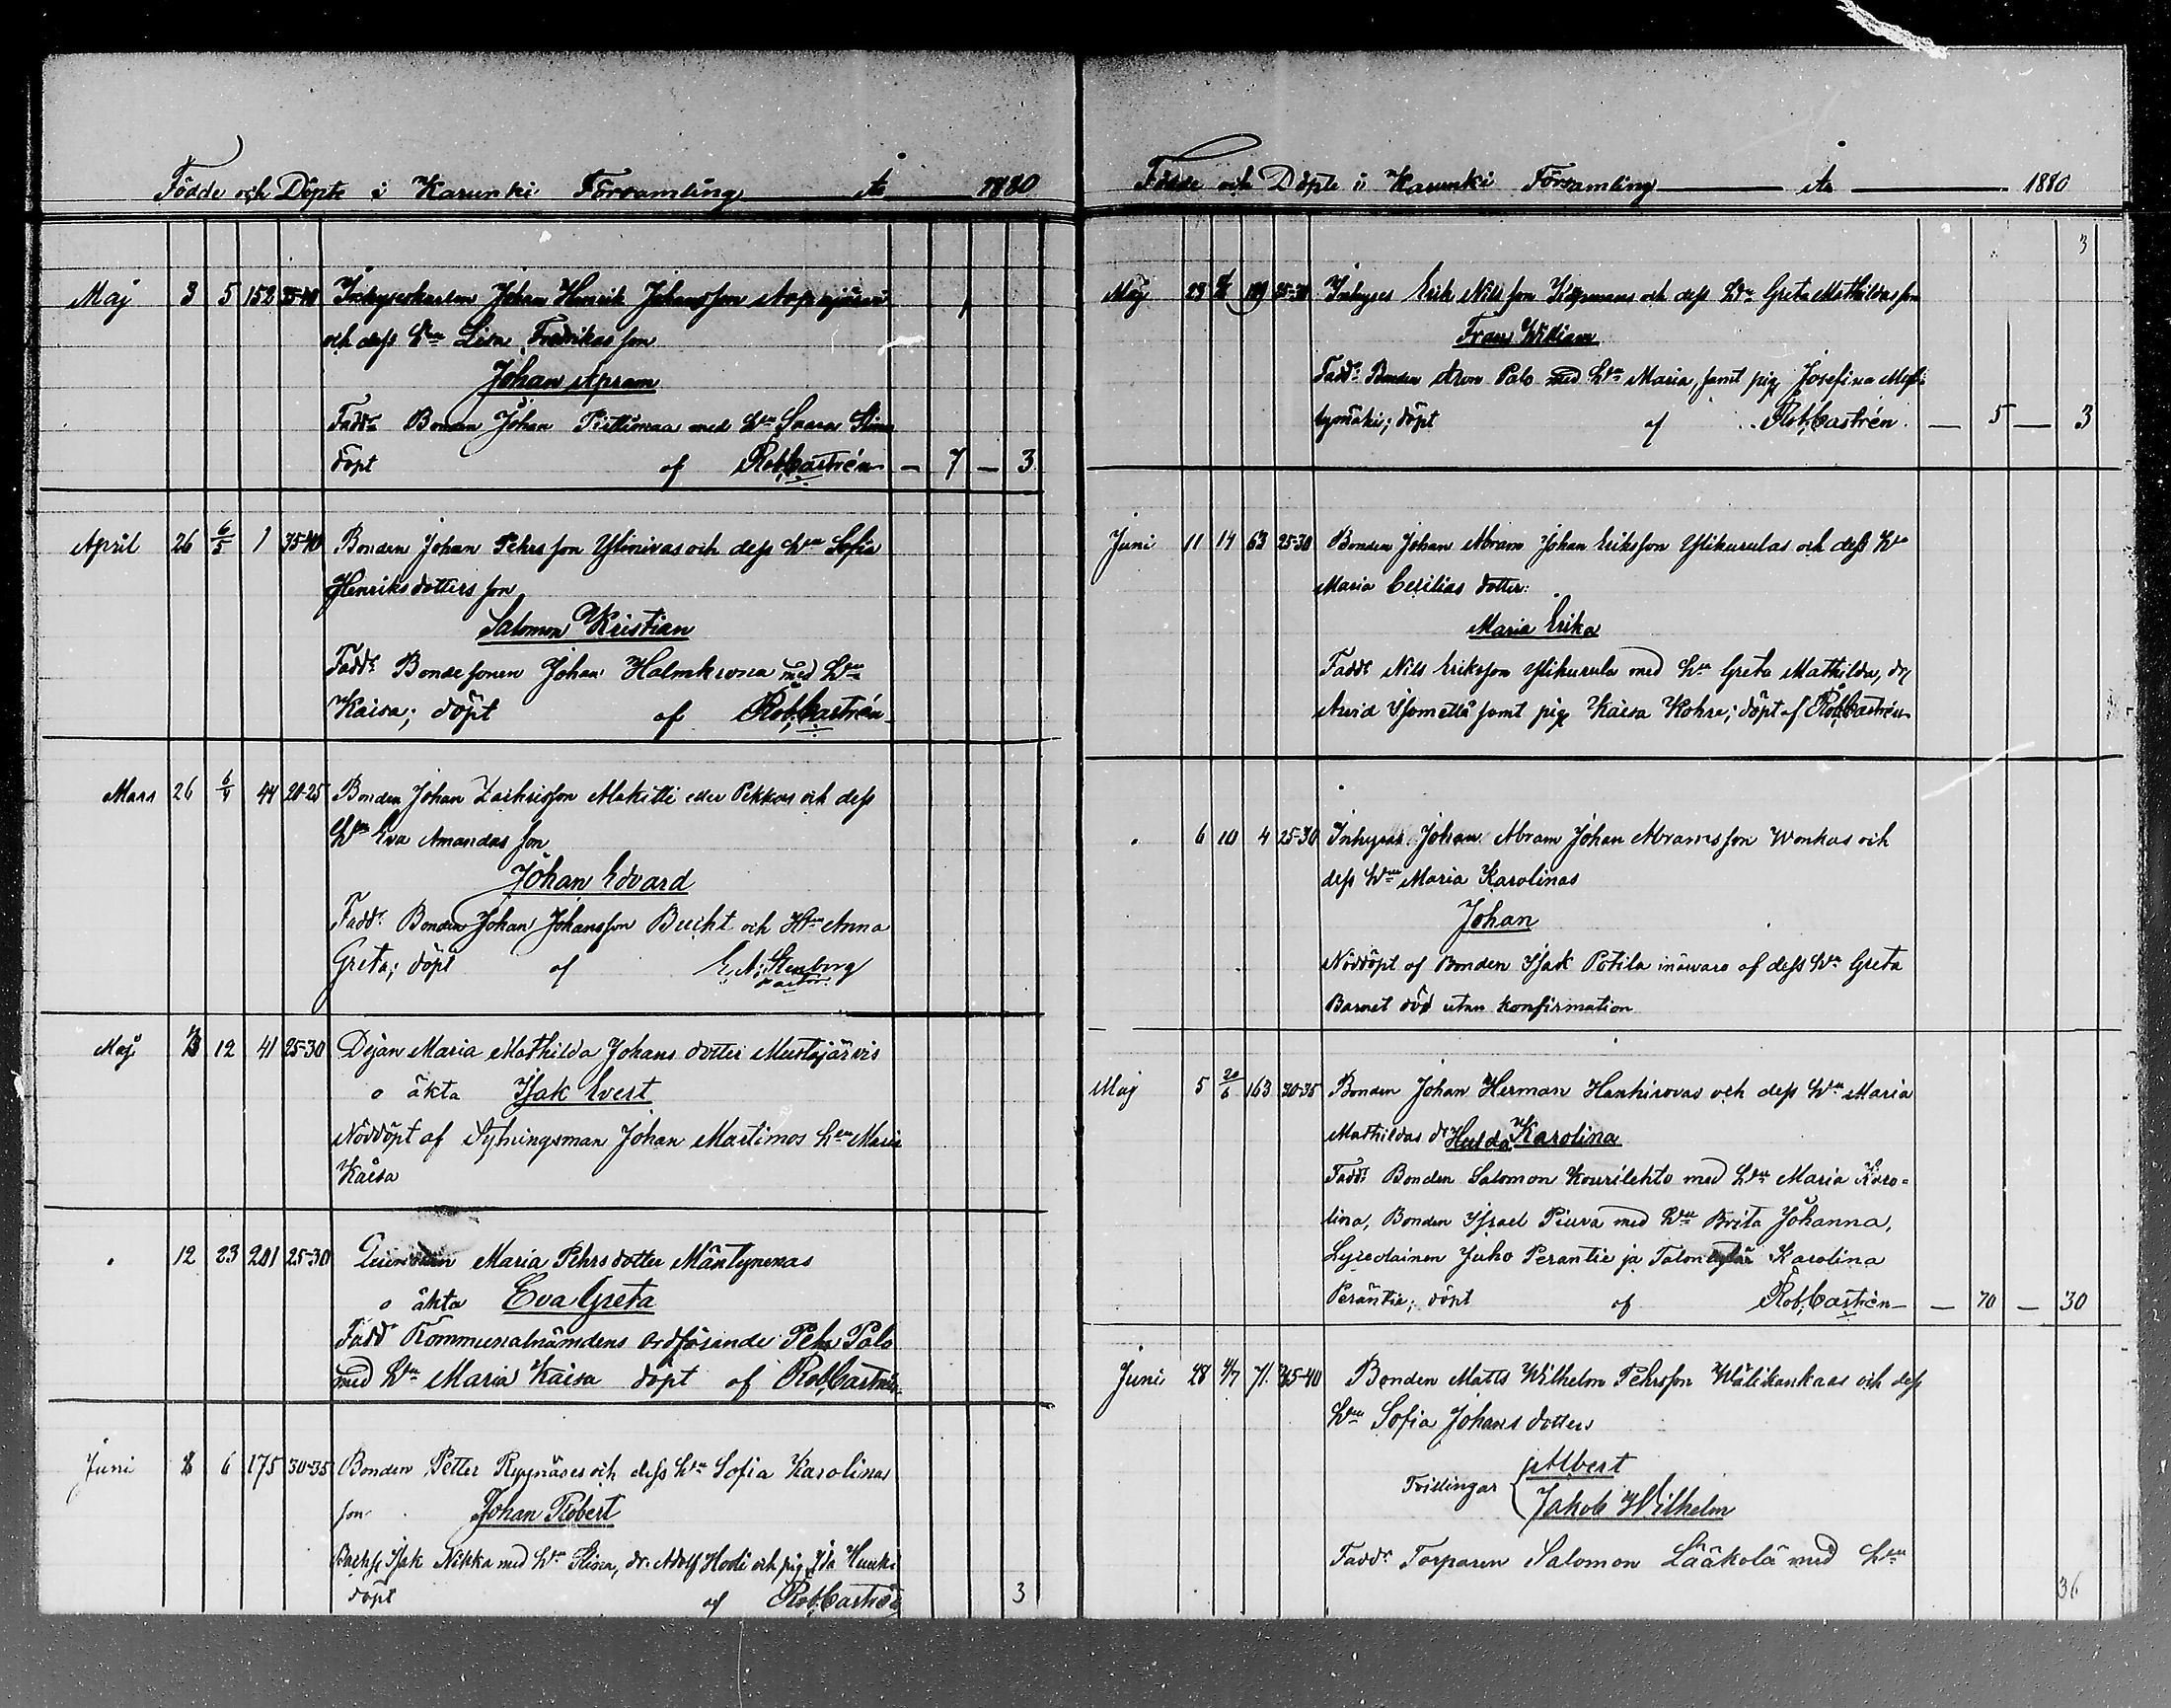 Födde och Döpte i Karunki Församling År 1880
Maj 3 5 152 35-40 Inhyseskarlen Johan Henrik Johansson
och dess Hu Lisa Fredrikas son
Johan Apram
Fadd. Bonden Johan med Hu Saara Stina
döpt af Rob. Castrén — 7 — 3
April 26 6/5 1 35-40 Bonden Johan Pehrsson Ylinivas och dess Hu Sofia
Henriksdotters son
Salomon Kristian
Fadd. Bondesonen Johan Halmkrona med Hu
Kaisa; döpt af Rob. Castrén
Mars 26 6/4 44 20-25 Bonden Johan Zachrisson Alakitti eller Pekkas och dess
Hu Eva Amandas son
Johan Edvard
Fadd. Bonden Johan Johansson Bucht och Hu Anna
Greta; döpt af E. A. Stenborg
pastor.
Maj 12 41 25-30 Dejan Maria Mathilda Johans dotter Mustajärvis
o äkta Isak Evert
Nöddöpt af Sytningsman Johan Martimos Hu Maria
Kaisa
" 12 23 201 25-30 Maria Pehrs dotter Mäntynenas
o äkta Eva Greta
Fadd. Kommunalnämdens ordförande Pehr Palo
med Hu Maria Kaisa döpt af Rob. Castrén
Juni 6 175 30-35 Bonden Petter Reginäses och dess Hu Sofia Karolinas
son Johan Robert
Isak Nikka med Hu Elisa, dr. Adolf Hooli och pig. Ida Hunki
döpt af Rob. Castrén 3
Födde och Döpte i Karunki Församling År 1880
3
Maj 23 109 25-30 Inhyses Erik Nilsson och dess Hu Greta Mathildas son
Frans William
Fadd. Bonden Aron Palo med Hu Maria, samt pig. Josefina
döpt af Rob. Castrén. — 5 — 3
Juni 11 14 63 25-30 Bonden Johan Abram Johan Eriksson Ylikurulas och dess Hu
Maria Cecilias dotter:
Maria Erika
Fadd. Nils Eriksson Ylikurula med Hu Greta Mathilda, dr.
Arvid Isometsä samt pig. Kaisa Kohra; döpt af Rob. Castrén
" 6 10 4 25-30 Inhyses Johan Abram Johan Abramsson Wonkas och
dess Hu Maria Karolinas
Johan
Nöddöpt af Bonden Isak Potila inäwaro af dess Hu Greta
Barnet död utan konfirmation
Maj 5 20/6 163 30-35 Bonden Johan Herman Hanhirovas och dess Hu Maria
Mathildas dr Hulda Karolina
Fadd. Bonden Salomon Kourilehto med Hu Maria Karo-
lina, Bonden Israel Piuva med Hu Brita Johanna,
Juho Perantie ja Karolina
Peräntie; döpt af Rob. Castrén — 70 — 30
Juni 28 4/7 71. 35-40 Bonden Matts Wilhelm Pehrsson Wälikankaas och dess
Hu Sofia Johans dotters
Albert
Tvillingar
Jakob Wilhelm
Fadd. Torparen Salomon Lääkölä med Hu
36